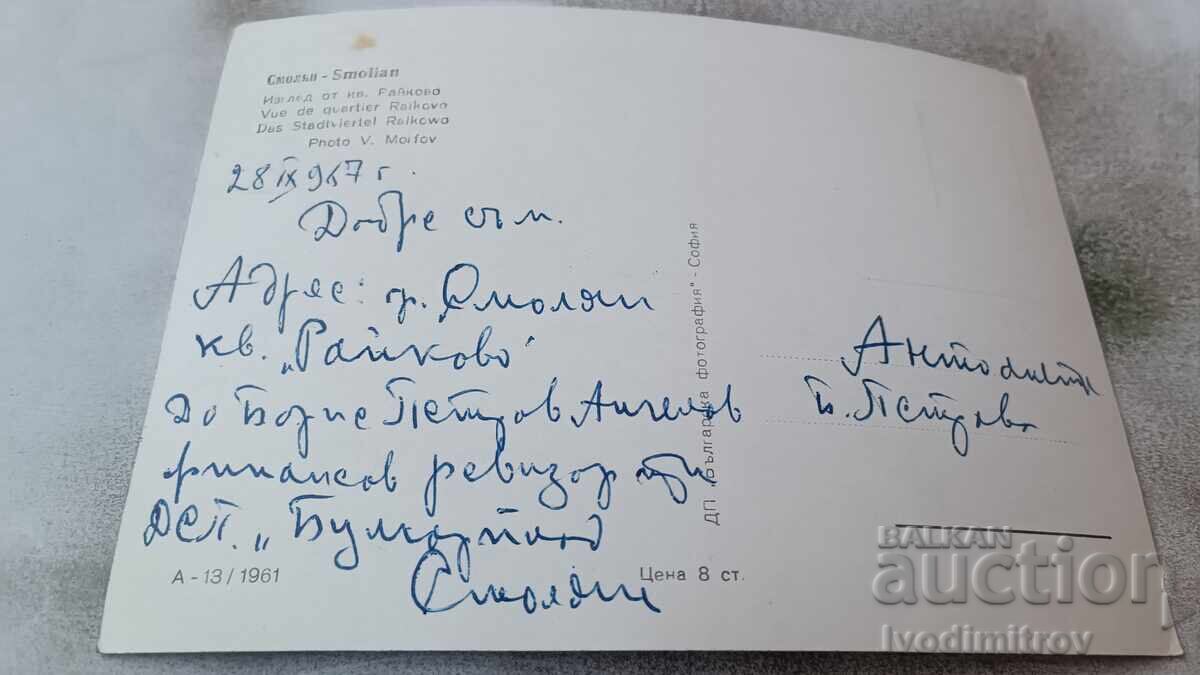 Смолян - Smolian
Изглед от кв. Райково
Vue de quartier Raikovo
Das Stadtviertel Raikowo
Photo V. Moifov
28 IX 967 г.
Добре съм.
Адрес: гр. Смолян
кв. „Райково"
До Борис Петров Ангелов
финансов ревизор при
ДСП. „Булгарплод
Смолян
А - 13 / 1961
Цена 8 ст.
ДП „Българска фотография" - София
Б. Петрова
BALKAN
auction
Ivodimitrov